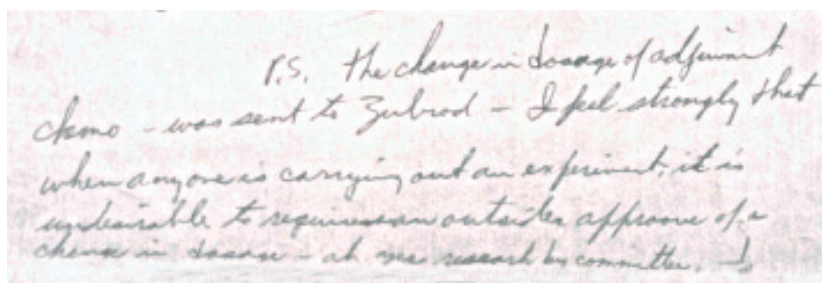 P.S. the change in dosage of adjuvant
chemo - was sent to Zubrod - I feel strongly that
when anyone is carrying out an experiment, it is
undesirable to require an outsider approve of a
change in dosage - ah research by committee.